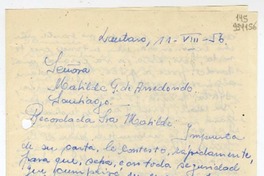 115
994156
Lautaro, 11-VIII-56.
Señora
Matilde G. de Arredondo
Santiago.-
Recordada Sra Matilde
Impuesta
de su carta, le contesto, rápidamente,
para que, sepa, con toda seguridad
que